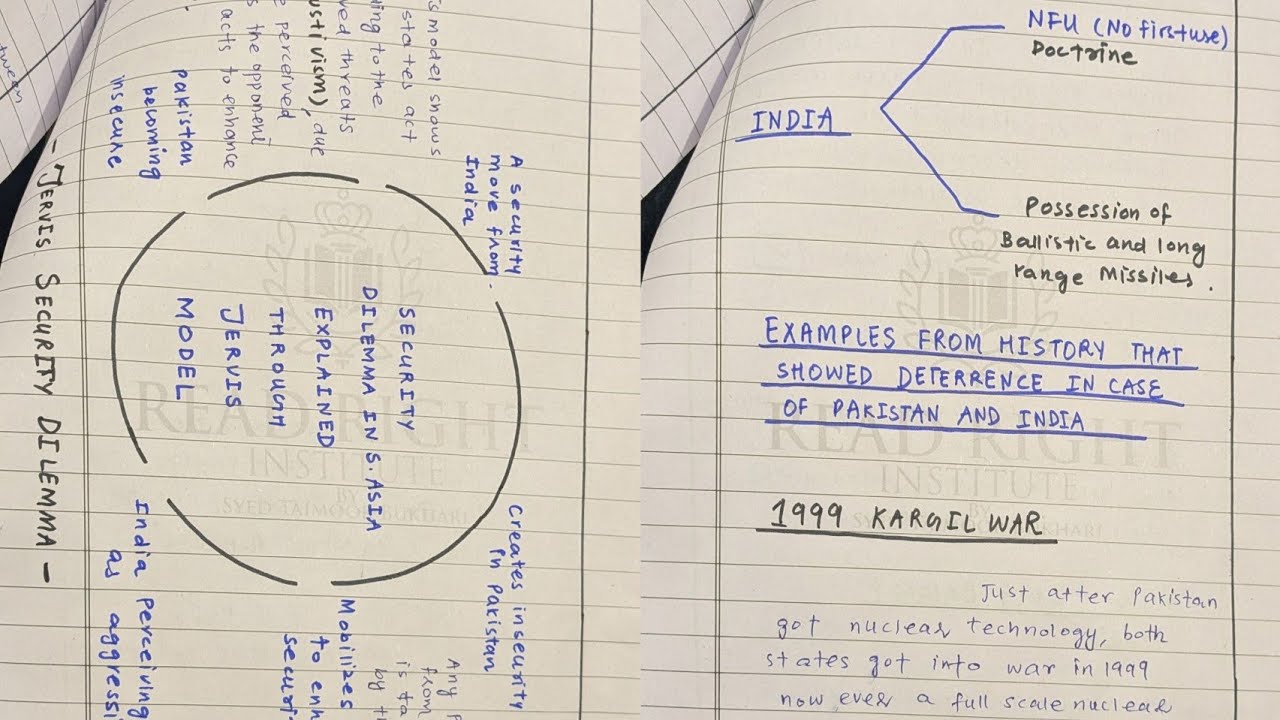 tween
is model shows
states act
ding to the
ved threats
ustivism), due
e perceived
s the opponent
acts to enhance
A security
move from
India
Creates insecurity
in Pakistan
Any
from
is ta
by t
Mobilizes
to enh
securi
India perceiving
as aggressi
Pakistan
becoming
insecure
SECURITY
DILEMMA IN S. ASIA
EXPLAINED
THROUGH
JERVIS
MODEL
- JERVIS SECURITY DILEMMA -
READ RIGHT
INSTITUTE
BY
SYED TAIMOOR BUKHARI
NFU (No first use)
Doctrine
INDIA
Possession of
Ballistic and long
range Missiles.
EXAMPLES FROM HISTORY THAT
SHOWED DETERRENCE IN CASE
OF PAKISTAN AND INDIA
READ RIGHT
INSTITUTE
BY
1999 KARGIL WAR
Just after Pakistan
got nuclear technology, both
states got into war in 1999
now ever a full scale nuclear